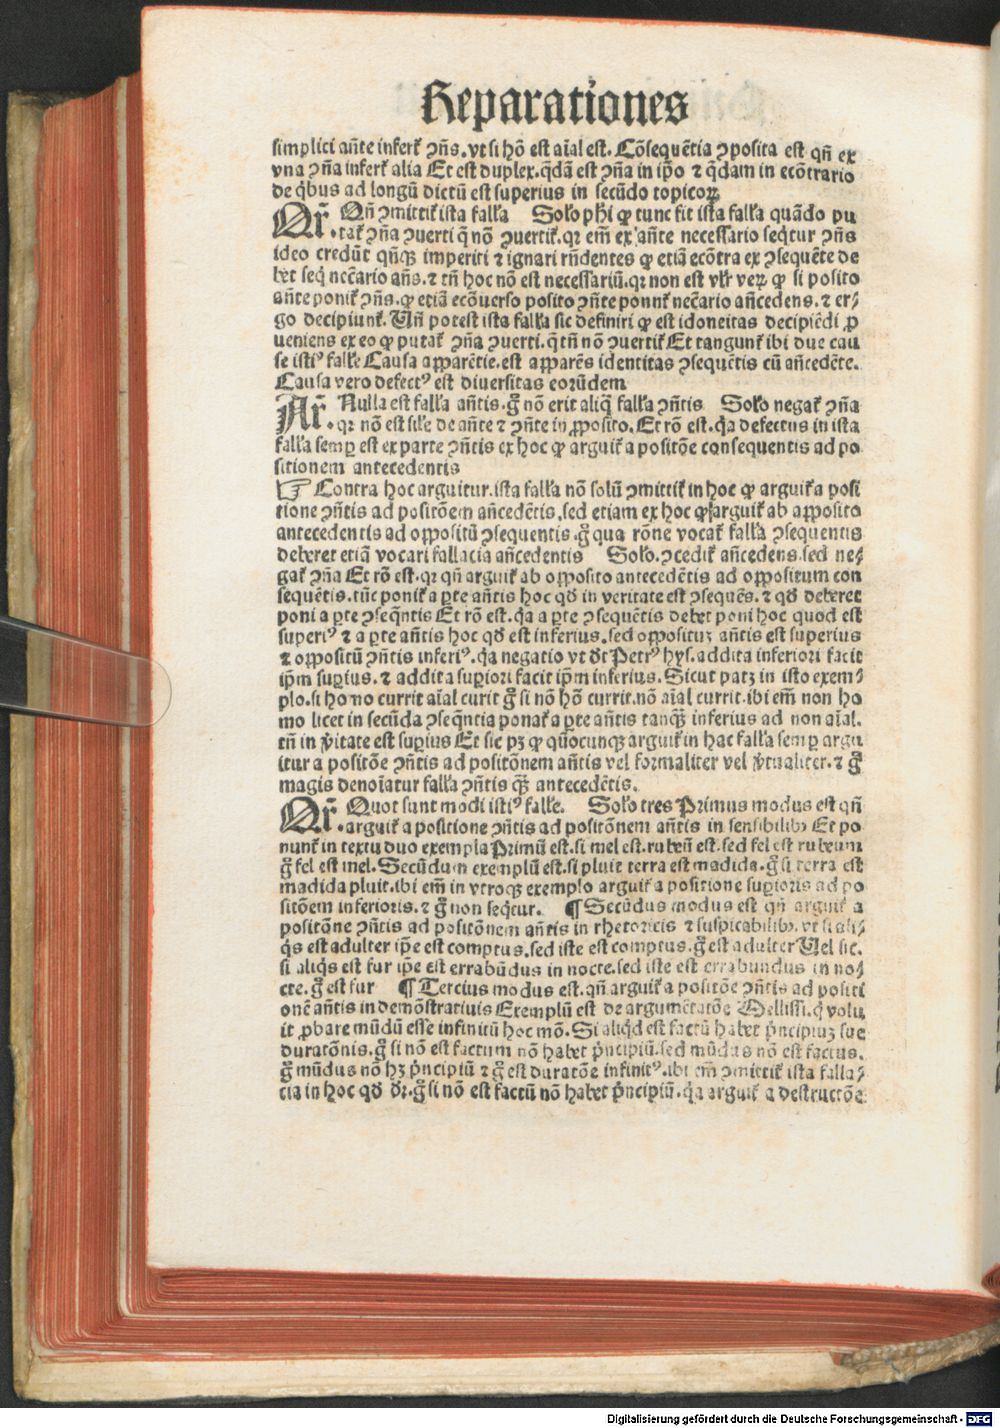 Reparationes
simplici ante infert̃ ꝯñs. vt si hõ est aĩal est. Cõsequẽtia ꝯposita est qñ ex
vna ꝯña infert̃ alia Et est duplex. q̃dã est ꝯña in ip̃o ⁊ q̃dam in ecõtrario
de q̃bus ad longũ dictũ est superius in secũdo topicoꝝ
Qr̃. Qñ ꝯmittit̃ ista fall̃a Solo ph̃i ꝙ tunc fit ista fall̃a quãdo pu
tat̃ ꝯña ꝯuerti q̃ nõ ꝯuertit̃. qꝛ em̃ ex añte necessario seq̃tur ꝯñs
ideo credũt qñqꝫ imperiti ⁊ ignari rñdentes ꝙ etiã ecõtra ex ꝯsequẽte de
bet seq̃ necc̃ario añs. ⁊ tñ hoc nõ est necessariũ. qꝛ non est vl̃r veꝝ ꝙ si posito
añte ponit̃ ꝯñs. ꝙ etiã ecõuerso posito ꝯñte ponnt̃ necc̃ario añcedens. ⁊ er⸗
go decipiunt̃. Uñ potest ista fall̃a sic definiri ꝙ est idoneitas decipiẽdi ꝓ
ueniens ex eo ꝙ putat̃ ꝯña ꝯuerti. q̃ tñ nõ ꝯuertit̃ Et tangunt̃ ibi due cau
se istiꝰ fall̃e Causa apparẽtie. est apparẽs identitas ꝯsequẽtis cũ añcedẽte.
Causa vero defectꝰ est diuersitas eorũdem
Ar̃. Nulla est fall̃a añtis. g̃ nõ erit aliq̃ fall̃a ꝯñtis Solo negat̃ ꝯña
qꝛ nõ est sil̃e de añte ⁊ ꝯñte in ꝓposito. Et rõ est. q̃a defectus in ista
fall̃a semꝑ est ex parte ꝯñtis ex hoc ꝙ arguit̃ a positõe consequentis ad po
sitionem antecedentis
☞ Contra hoc arguitur. ista fall̃a nõ solũ ꝯmittit̃ in hoc ꝙ arguit̃ a posi
tione ꝯñtis ad positõem añcedẽtis. sed etiam ex hoc ꝙ arguit̃ ab opposito
antecedentis ad oppositũ ꝯsequentis. g̃ qua rõne vocat̃ fall̃a ꝯsequentis
deberet etiã vocari fallacia añcedentis Solo. ꝯcedit̃ añcedens. sed ne⸗
gat̃ ꝯña Et rõ est. qꝛ qñ arguit̃ ab opposito antecedẽtis ad oppositum con
sequẽtis. tũc ponit̃ a ꝑte añtis hoc qð in veritate est ꝯsequẽs. ⁊ qð deberet
poni a ꝑte ꝯseq̃ntis Et rõ est. q̃a a ꝑte ꝯsequẽtis debet poni hoc quod est
superiꝰ ⁊ a ꝑte añtis hoc qð est inferius. sed oppositũ añtis est superius
⁊ oppositũ ꝯñtis inferiꝰ. q̃a negatio vt dt̃ Petrꝰ hys. addita inferiori facit
ip̃m suꝑius. ⁊ addita suꝑiori facit ip̃m inferius. Sicut patꝫ in isto exem⸗
plo. si homo currit aĩal curit g̃ si nõ hõ currit. nõ aĩal currit. ibi em̃ non ho
mo licet in secũda ꝯseq̃ntia ponat̃ a ꝑte añtis tanqꝫ inferius ad non aĩal.
tñ in ṽitate est suꝑius Et sic pꝫ ꝙ qũocunqꝫ arguit̃ in hac fall̃a semꝑ argu
itur a positõe ꝯñtis ad positõnem añtis vel formaliter vel ṽtualiter. ⁊ g̃
magis denoĩatur fall̃a ꝯñtis qꝫ antecedẽtis.
Qr̃. Quot sunt modi istiꝰ fall̃e. Solo tres Primus modus est qñ
arguit̃ a positione ꝯñtis ad positõnem añtis in sensibilibꝫ Et po
nunt̃ in textu duo exempla Primũ est. si mel est. rubeũ est. sed fel est rubeum
g̃ fel est mel. Secũdum exemplũ est. si pluit terra est madida. g̃ si terra est
madida pluit. ibi em̃ in vtroqꝫ exemplo arguit̃ a positione suꝑioris ad po
sitõem inferioris. ⁊ g̃ non seq̃tur. ¶ Secũdus modus est qñ arguit̃ a
positõne ꝯñtis ad positõnem añtis in rhetoricis ⁊ suspicabilibꝫ. vt si ali⸗
q̃s est adulter ip̃e est comptus. sed iste est comptus. g̃ est adulter Uel sic.
si aliq̃s est fur ip̃e est errabũdus in nocte. sed iste est errabundus in no⸗
cte. g̃ est fur ¶ Tercius modus est. qñ arguit̃ a positõe ꝯñtis ad positi
onẽ añtis in demõstratiuis Exemplũ est de argumẽtatõe Mellissi. q̃ volu
it ꝓbare mũdũ esse infinitũ hoc mõ. Si aliq̃d est factũ habet p̃ncipiuꝫ sue
duratõnis. g̃ si nõ est factum nõ habet p̃ncipiũ. sed mũdus nõ est factus.
g̃ mũdus nõ hꝫ p̃ncipiũ ⁊ g̃ est duratõe infinitꝰ. ibi em̃ ꝯmittit̃ ista falla⸗
cia in hoc qð dr̃. g̃ si nõ est factũ nõ habet p̃ncipiũ. q̃a arguit̃ a destructõe
Digitalisierung gefördert durch die Deutsche Forschungsgemeinschaft - DFG